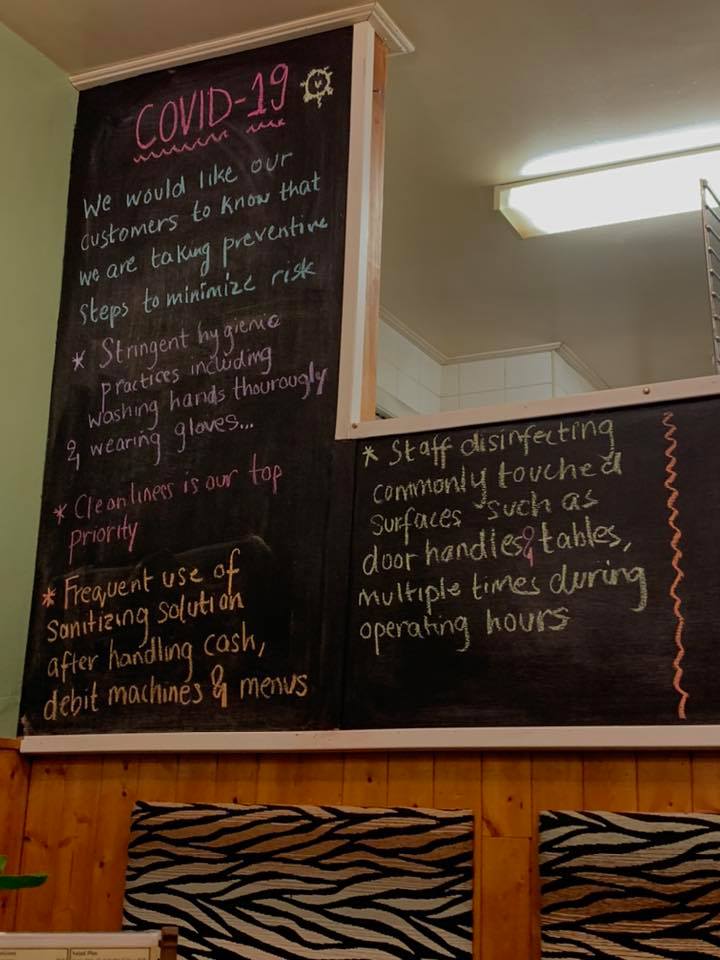 COVID-19
We would like our
customers to know that
we are taking preventive
steps to minimize risk
* Stringent hygienic
practices including
washing hands thourougly
& wearing gloves...
* Cleanliness is our top
priority
* Frequent use of
Sanitizing solution
after handling cash,
debit machines & menus
* Staff disinfecting
commonly touched
surfaces such as
door handles & tables,
multiple times during
operating hours